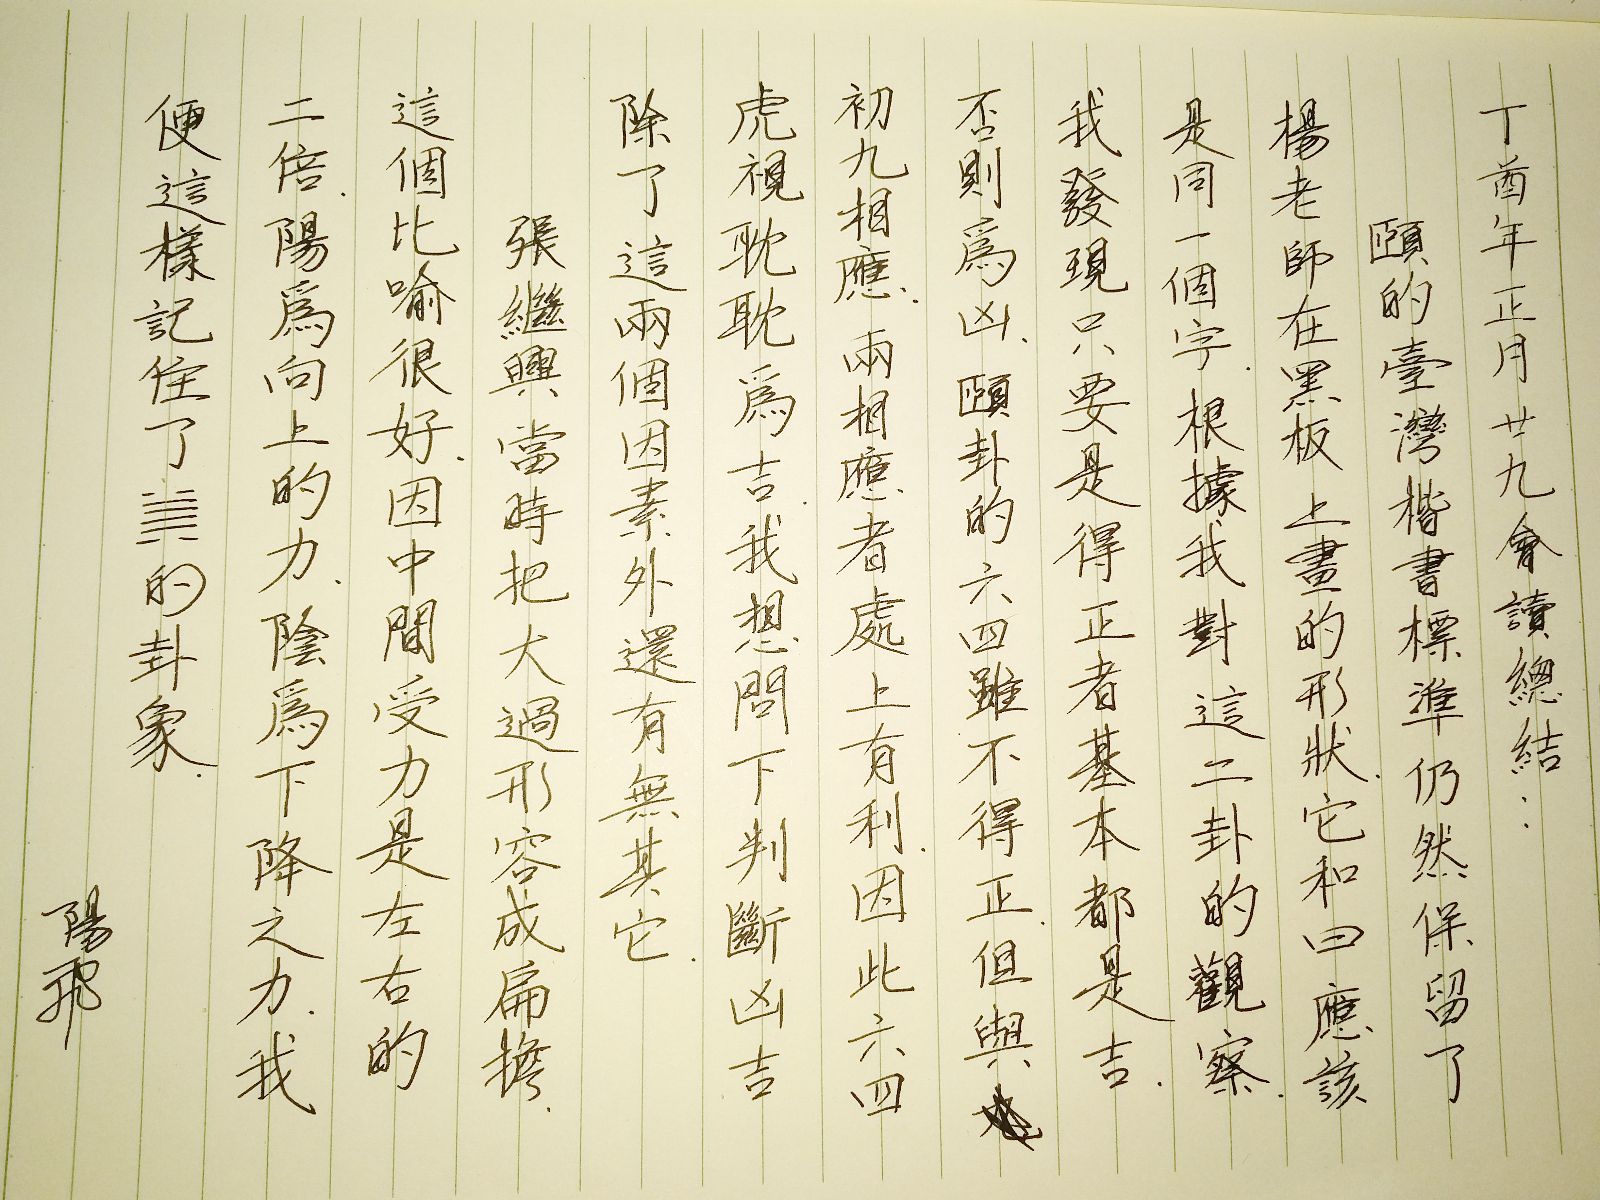 丁酉年正月廿九會讀總結：
頤的臺灣楷書標準仍然保留了
楊老師在黑板上畫的形狀.它和曰應該
是同一個字.根據我對這二卦的觀察.
我發現只要是得正者基本都是吉.
否則爲凶.頤卦的六四雖不得正.但與
初九相應.兩相應者處上有利.因此六四
虎視耽耽爲吉.我想問下判斷凶吉
除了這兩個因素外還有無其它.
張繼興當時把大過形容成扁擔.
這個比喻很好.因中間受力是左右的
二倍.陽爲向上的力.陰爲下降之力.我
便這樣記住了䷛的卦象.
陽飛